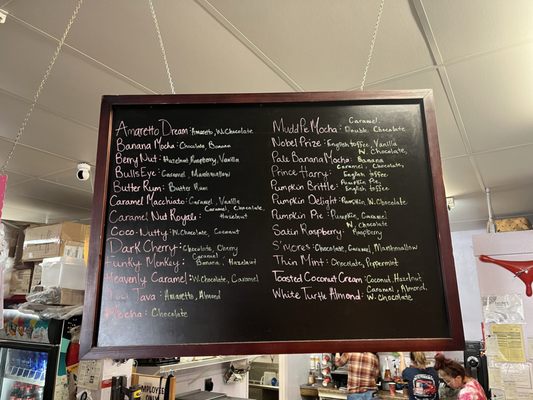 Amaretto Dream: Amaretto, W. Chocolate
Banana Mocha: Chocolate, Banana
Berry Nut: Hazelnut, Raspberry, Vanilla
Bulls Eye: Caramel, Marshmallow
Butter Rum: Butter Rum
Caramel Macchiato: Caramel, Vanilla
Caramel Nut Royale: Caramel, Chocolate, Hazelnut
Coco-Nutty: W. Chocolate, Coconut
Dark Cherry: Chocolate, Cherry
Funky Monkey: Caramel, Banana, Hazelnut
Heavenly Caramel: W. Chocolate, Caramel
Java: Amaretto, Almond
Mocha: Chocolate
Mudd Pie Mocha: Caramel, Double Chocolate
Nobel Prize: English toffee, Vanilla
Pale Banana Mocha: W. Chocolate, Banana
Prince Harry: Caramel, Chocolate, English toffee
Pumpkin Brittle: Pumpkin Pie, English toffee
Pumpkin Delight: Pumpkin, W. Chocolate
Pumpkin Pie: Pumpkin, Caramel
Satin Raspberry: W. Chocolate, Raspberry
S'mores: Chocolate, Caramel, Marshmallow
Thin Mint: Chocolate, Peppermint
Toasted Coconut Cream: Coconut, Hazelnut
White Turtle Almond: Caramel, Almond, W. Chocolate
EMPLOYEE
ONLY